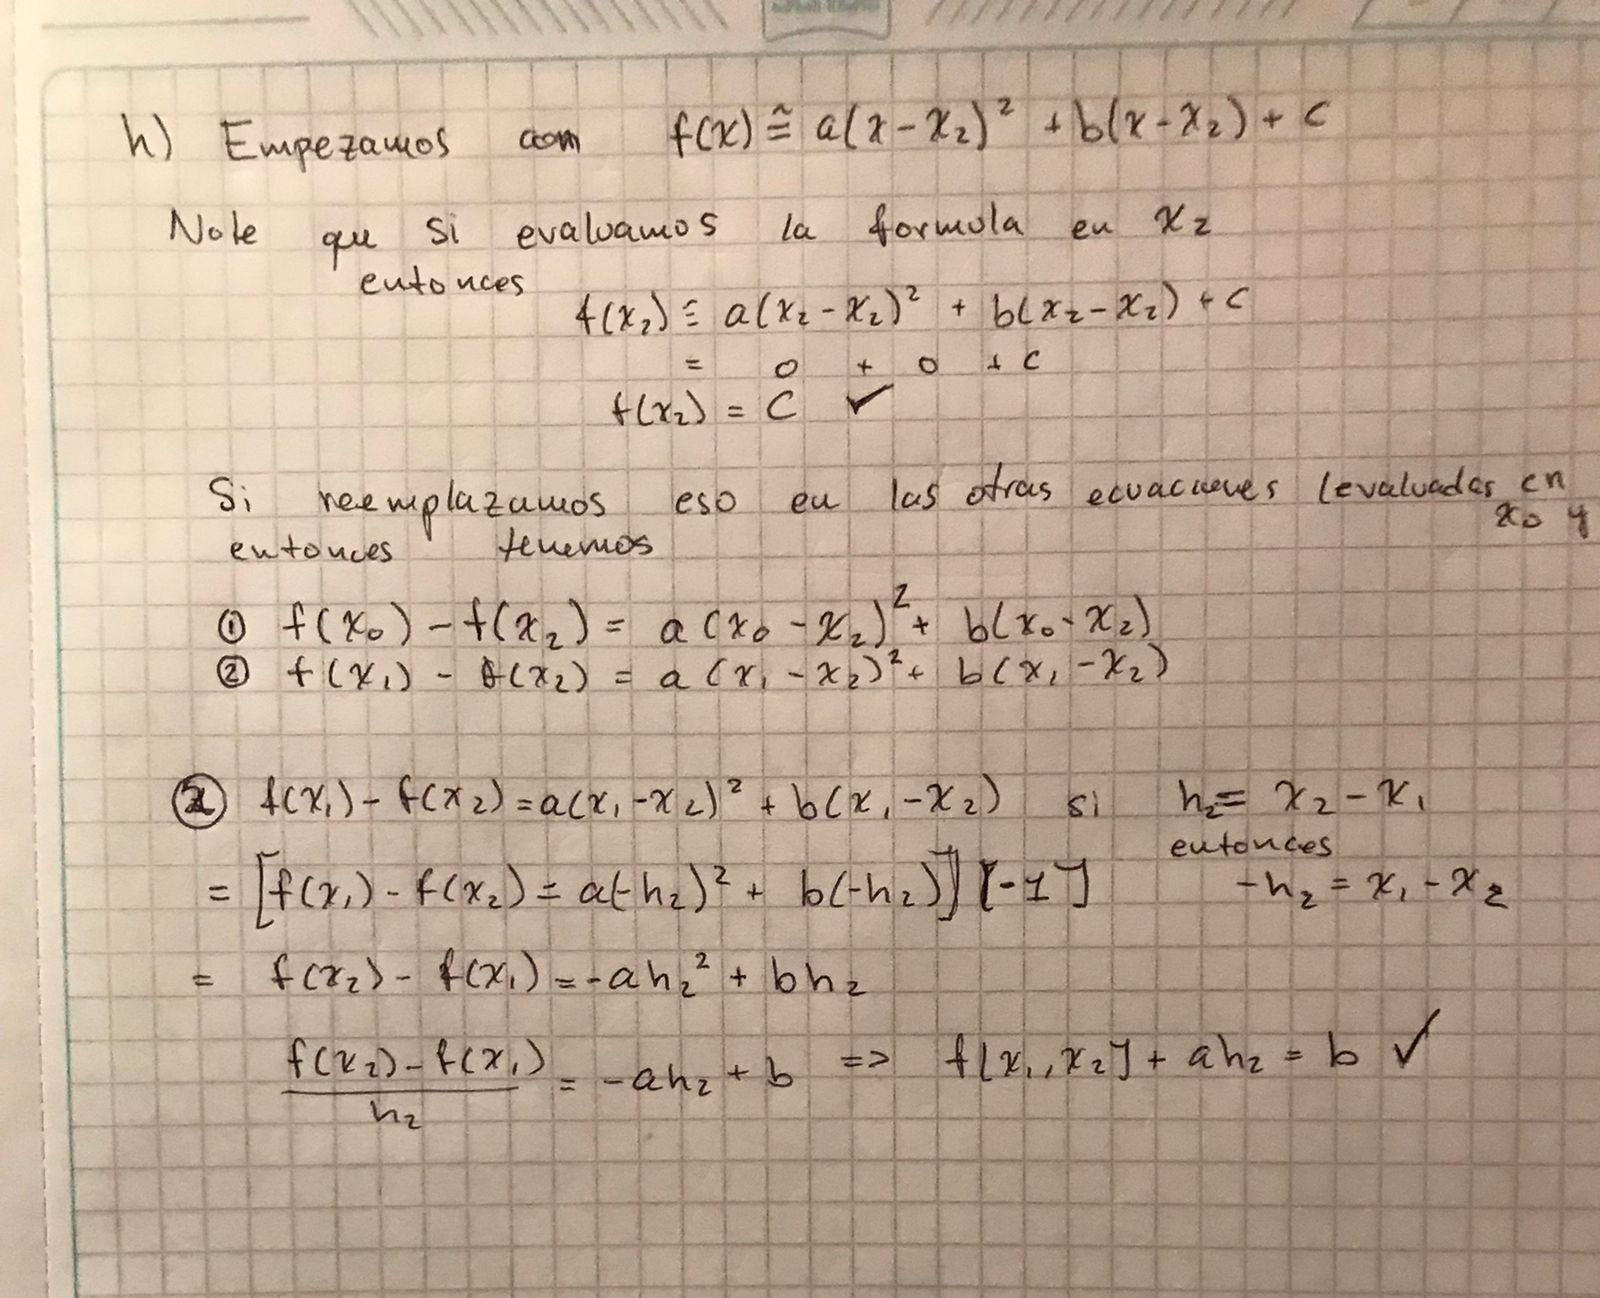 h) Empezamos con f(x) ≅ a(x-x₂)² + b(x-x₂) + c
Note que si evaluamos la formula en x₂
entonces
f(x₂) ≅ a(x₂-x₂)² + b(x₂-x₂) + c
= 0 + 0 + c
f(x₂) = c ✓
Si reemplazamos eso en las otras ecuaciones (evaluadas en
x₀ y
entonces tenemos
① f(x₀) - f(x₂) = a(x₀-x₂)² + b(x₀-x₂)
② f(x₁) - f(x₂) = a(x₁-x₂)² + b(x₁-x₂)
② f(x₁) - f(x₂) = a(x₁-x₂)² + b(x₁-x₂) si h₂ = x₂ - x₁
entonces
= [f(x₁) - f(x₂) = a(-h₂)² + b(-h₂)] [-1] -h₂ = x₁ - x₂
= f(x₂) - f(x₁) = -ah₂² + bh₂
(f(x₂) - f(x₁))/h₂ = -ah₂ + b => f[x₁, x₂] + ah₂ = b ✓